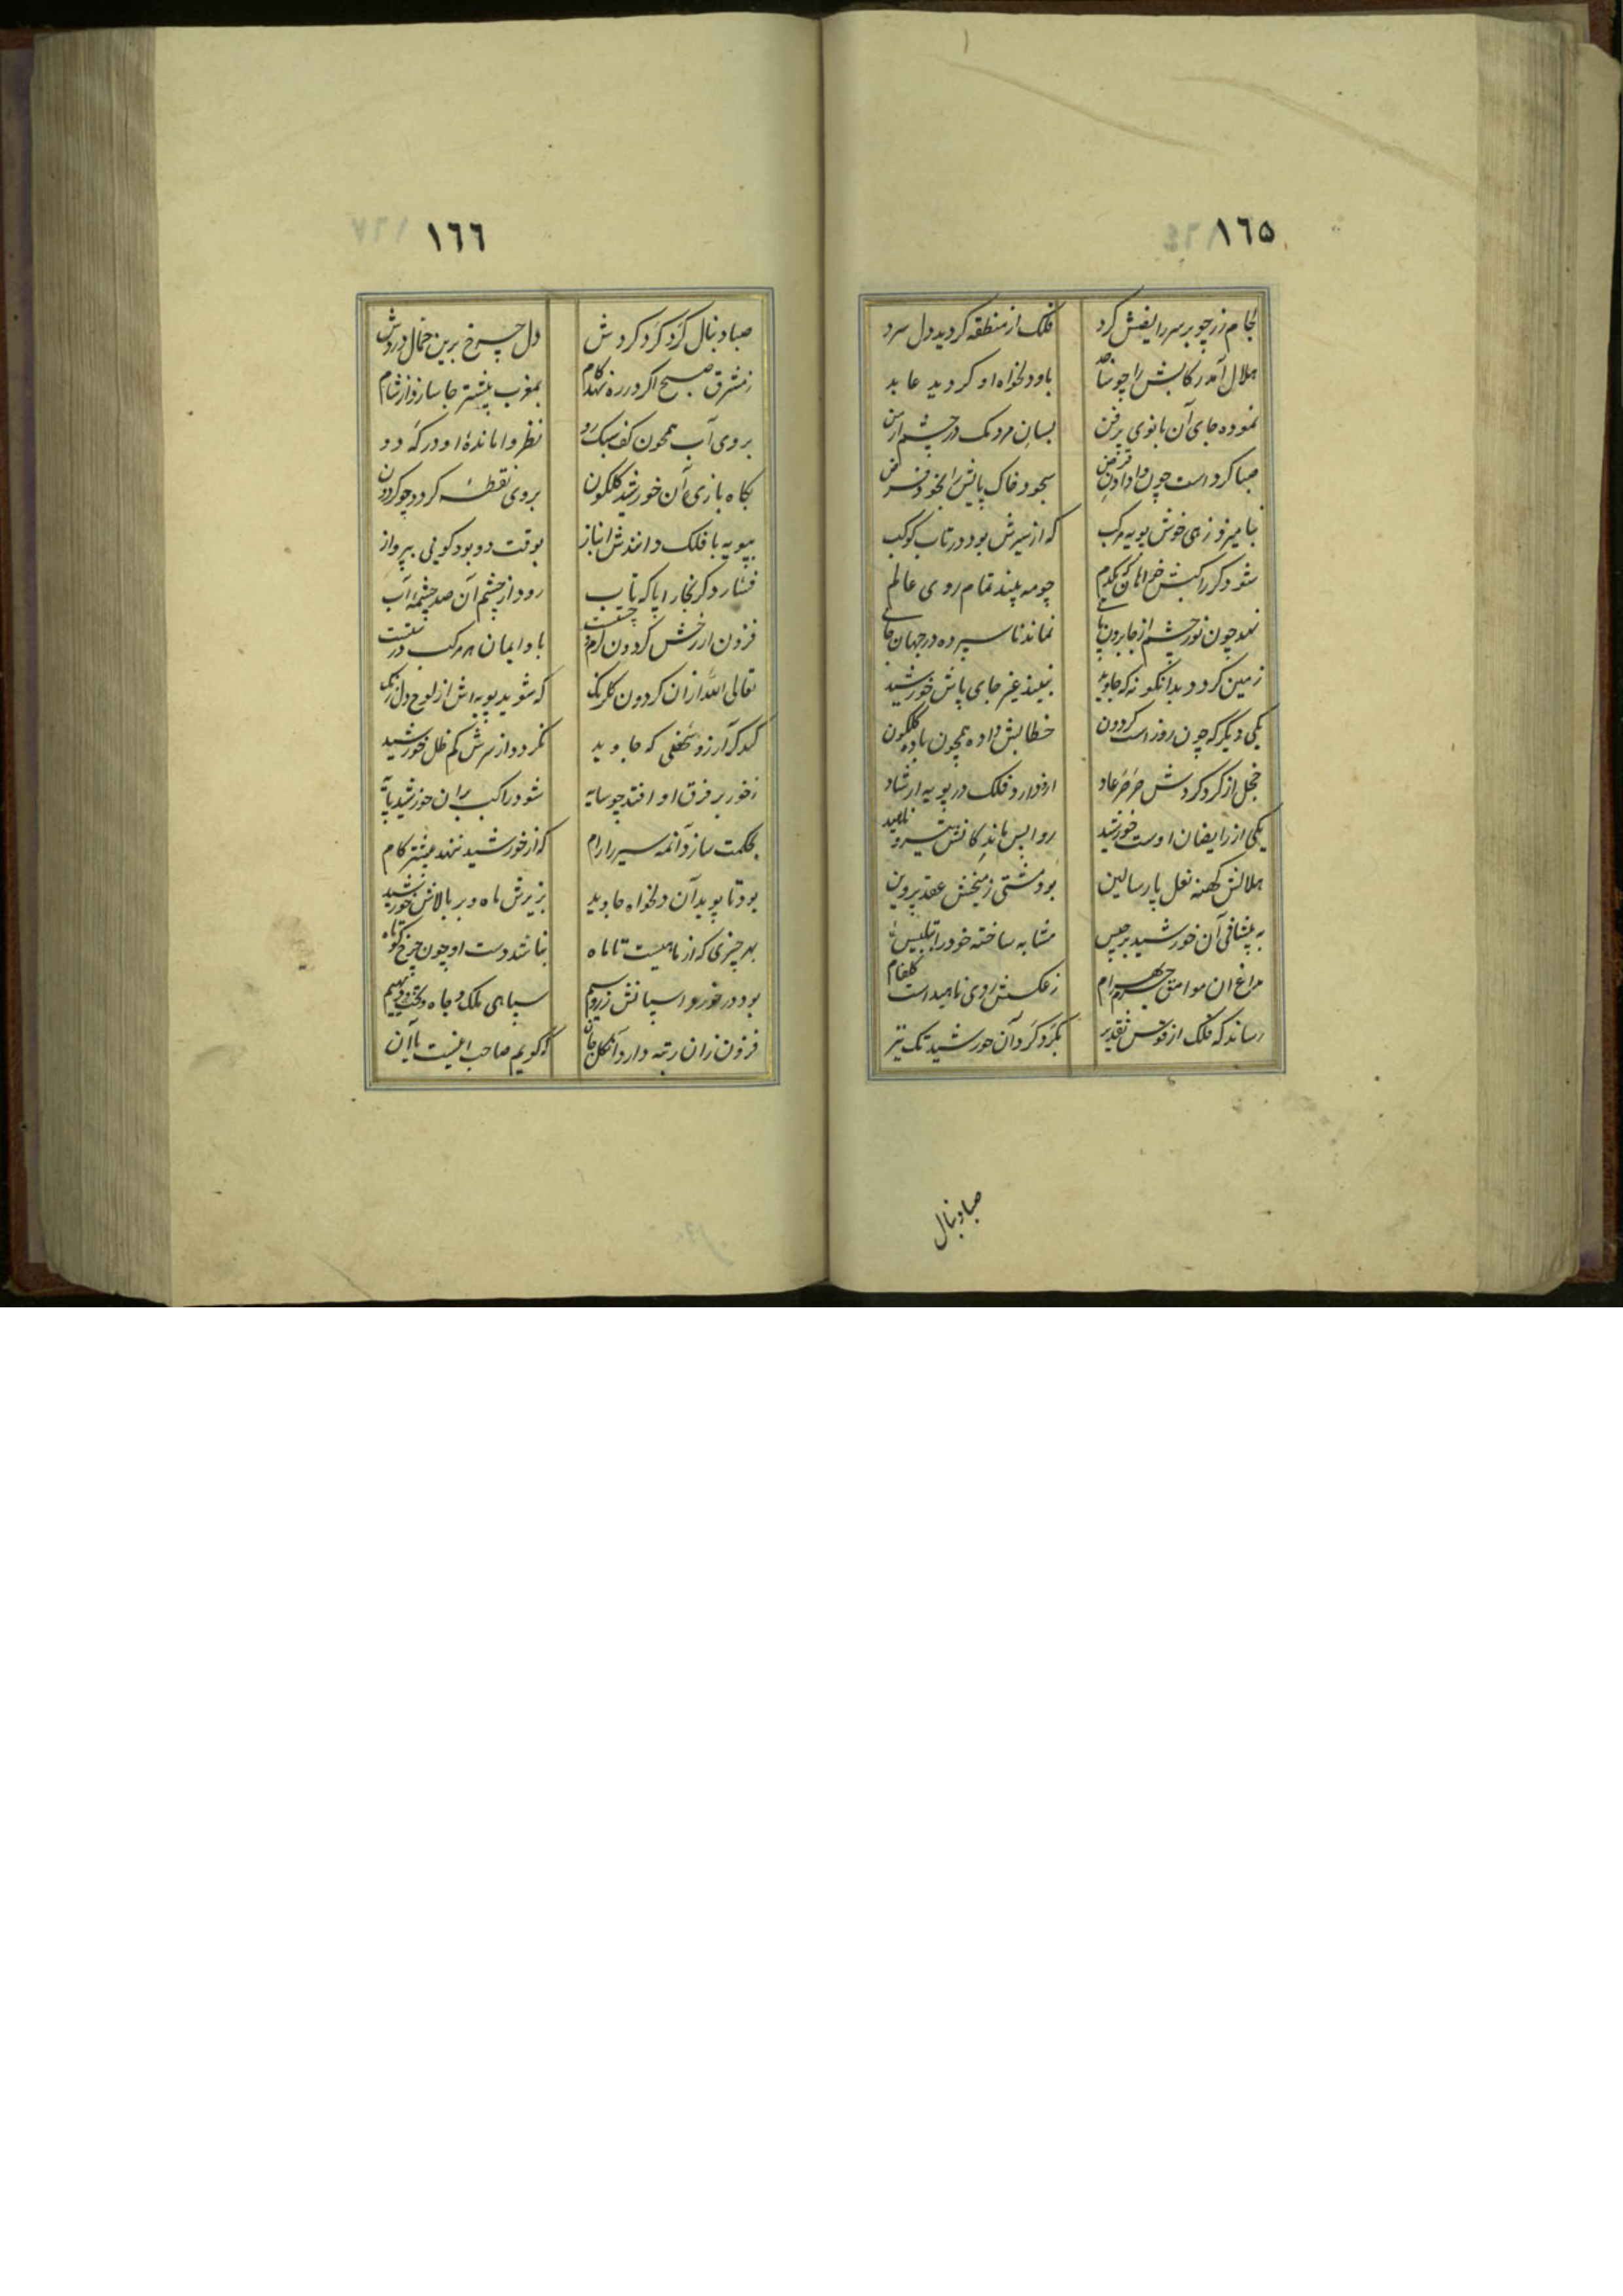 ١٦٥
لجام زر چو بر سر رایضش کرد فلک از منطقه کردید دل سرد
هلال آمد رکابش را چو ساجد باو دلخواه او کردید عابد
نموده جای آن بانوی پرفن بسان مردمک در چشم ارمن
صبا کرد است چون وا دادن قرض سجود خاک پایش را بخود فرض
بنامیزد زهی خوش پویه مرکب که از سیرش بود در تاب کوکب
شود کر راکبش خرامان یکدم چو مه بیند تمام روی عالم
نهد چون نور چشم از جا برون پای نماند ناسپرده در جهان جای
زمین کردد بدانکونه که جاوید نبیند غیر جای پاش خورشید
یکی دیکر که چون روز است کردون خطابش داده همچون باده کلکون
خجل از کرد کردش صرصر عاد ازو دارد فلک در پویه ارشاد
یکی از رایضان اوست خورشید ناهید
هلالش کهنه نعل پارسالین بود مشتی ز میخش عقد پروین
به پیشانی آن خورشید برجیس مشابه ساخته خود را بتلبیس
بهرام ز عکسش روی ناهید است کلفام
رساند که فلک از قوس تقدیر بکرد کرد آن خورشید تک تیر
صبا دنبال
١٦٦
صبا دنبال کرد کرد کردش دل چرخ برین حمال دردش
ز مشرق صبح اکر در ره نهد کام بمغرب پیشتر جا سازد از شام
بروی آب همچون کف سبک رو نظر وامانده او در که دو
بکاه بازی آن خورشید کلکون بروی نقطه کردد چو کردون
بپویه با فلک دانندش انباز بوقت دو بود کوئی بپرواز
فشارد کر بخارا پا که تاب رود از چشم آن صد چشمه آب
فزون از رخش کردون کرم و چست است باد ایمان مرکب درست است
تعالی الله از آن کردون کلرنک که شوید پویه اش از لوح دل زنک
کند کر آرزو شخصی که جاوید نکردد از سرش کم ظل خورشید
ز خور بر فرق او افتد چو سایه شود راکب بران خورشید پایه
بحکمت سازد آنمه سیر را رام که از خورشید ننهد پیشتر کام
بود تا پوید آن دلخواه جاوید بزیرش ماه و بر بالاش خورشید
بهر چیزی که از ماهیست تا ماه نباشد دست او چون چرخ کوتاه
بود در خورد اسپانش زر و سیم سپاهی ملک و جاه و تخت و دیهیم
فزون زان رتبه دارد آن کل جان که کویم صاحب اینست یا آن